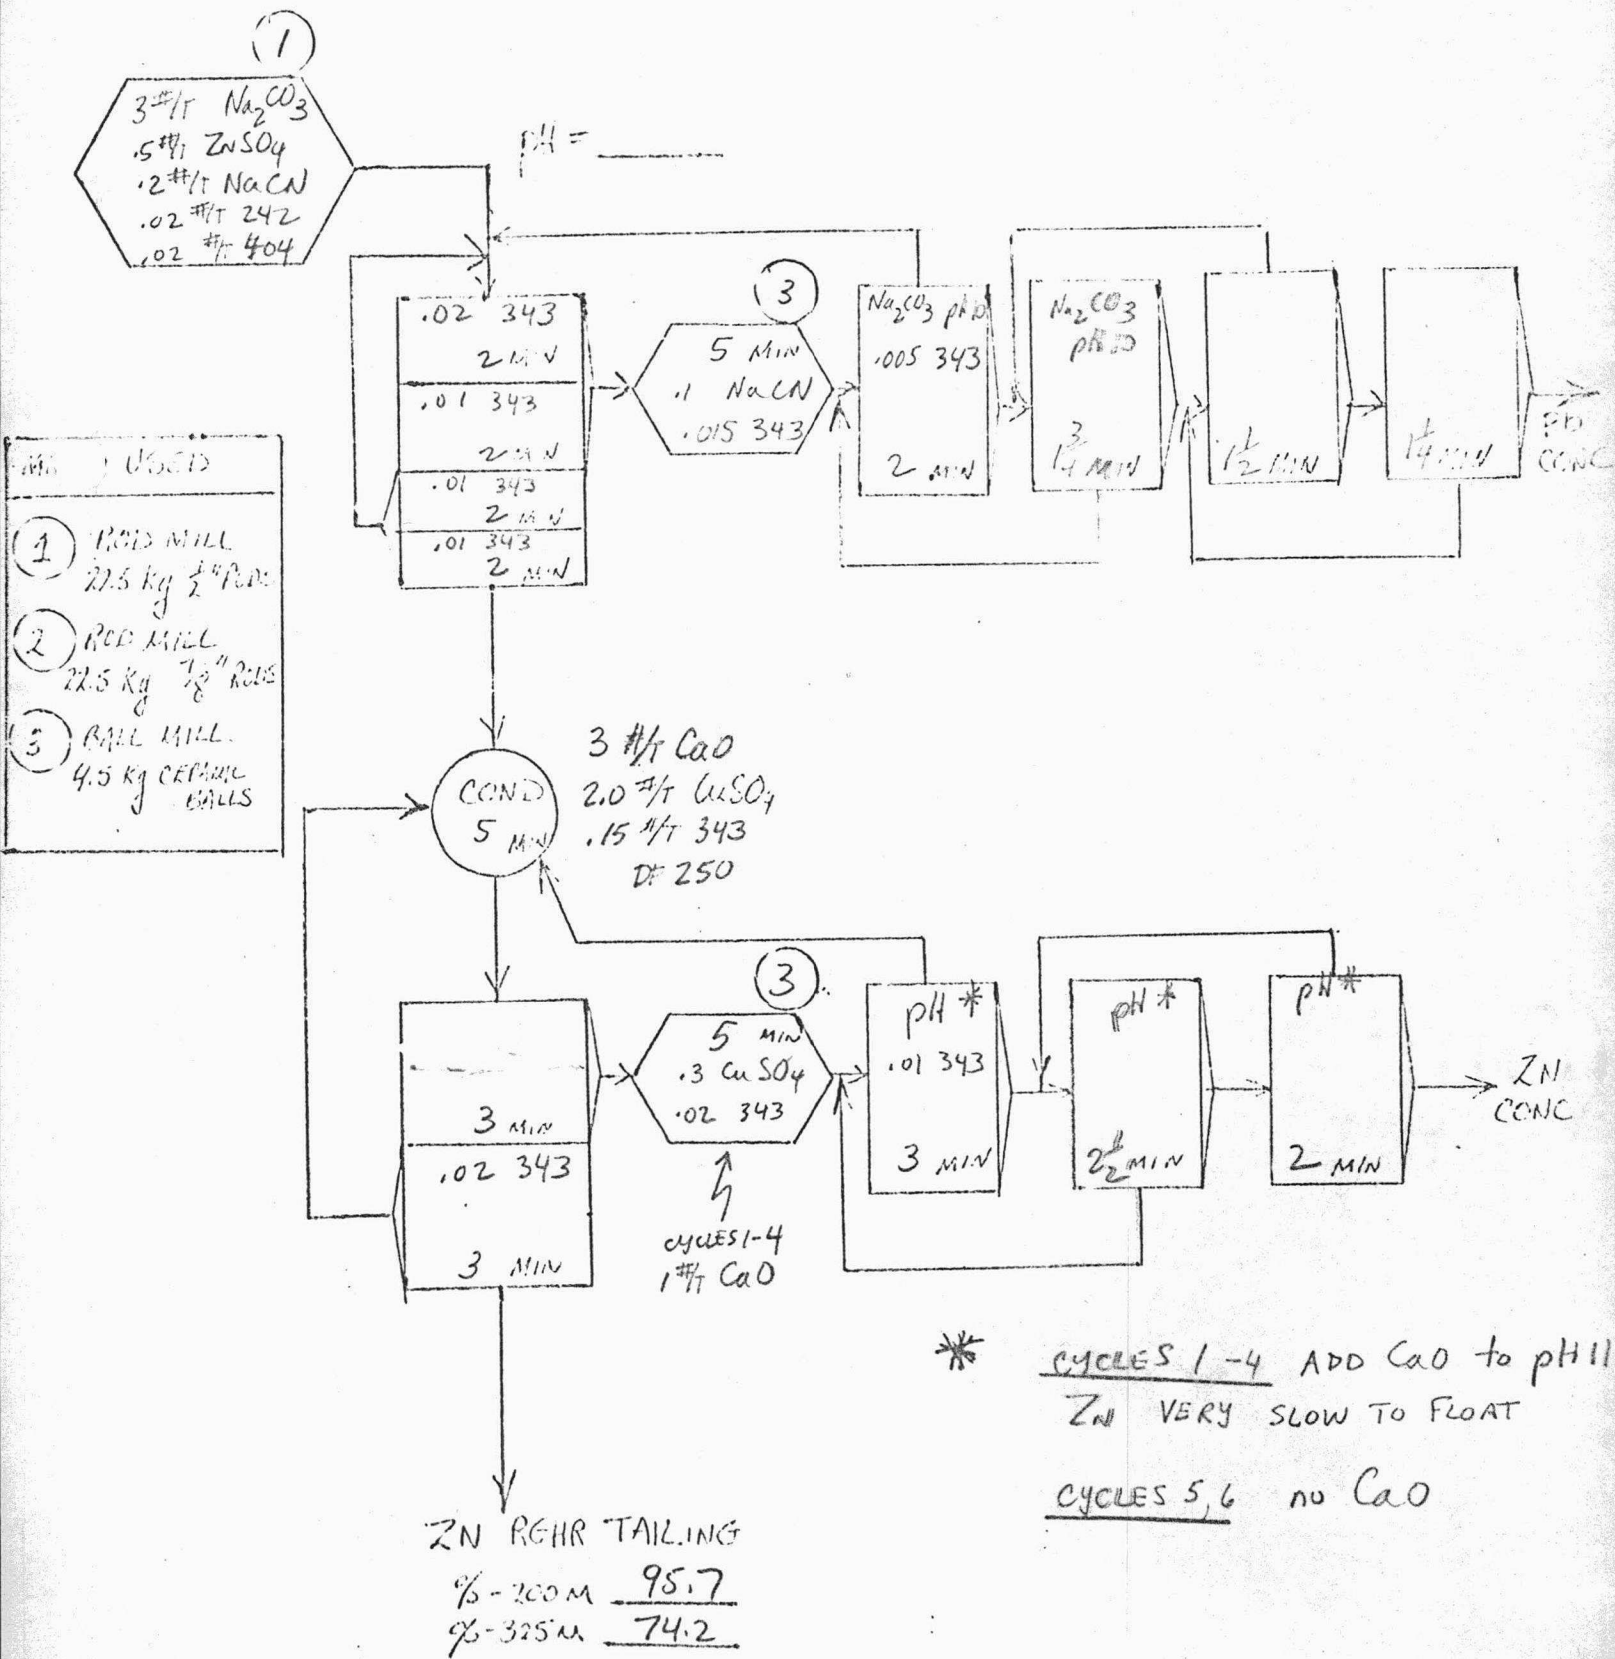 1
3 #/T Na2CO3
.5 #/T ZnSO4
.2 #/T NaCN
.02 #/T 242
.02 #/T 404
pH = ____
.02 343
2 MIN
.01 343
2 MIN
.01 343
2 MIN
.01 343
2 MIN
3
5 MIN
.1 NaCN
.015 343
Na2CO3 pH 10
.005 343
2 MIN
Na2CO3
pH 10
1 3/4 MIN
1 1/2 MIN
1 1/4 MIN
Pb
CONC
USED
1 ROD MILL
22.5 Kg 1/2" RODS
2 ROD MILL
22.5 Kg 7/8" RODS
3 BALL MILL
4.5 Kg CERAMIC
BALLS
COND
5 MIN
3 #/T CaO
2.0 #/T CuSO4
.15 #/T 343
DF 250
3 MIN
.02 343
3 MIN
3
5 MIN
.3 CuSO4
.02 343
CYCLES 1-4
1 #/T CaO
pH *
.01 343
3 MIN
pH *
2 1/2 MIN
pH *
2 MIN
ZN
CONC
* CYCLES 1-4 ADD CaO to pH 11
ZN VERY SLOW TO FLOAT
CYCLES 5,6 no CaO
ZN RGHR TAILING
%-200M 95.7
%-325M 74.2